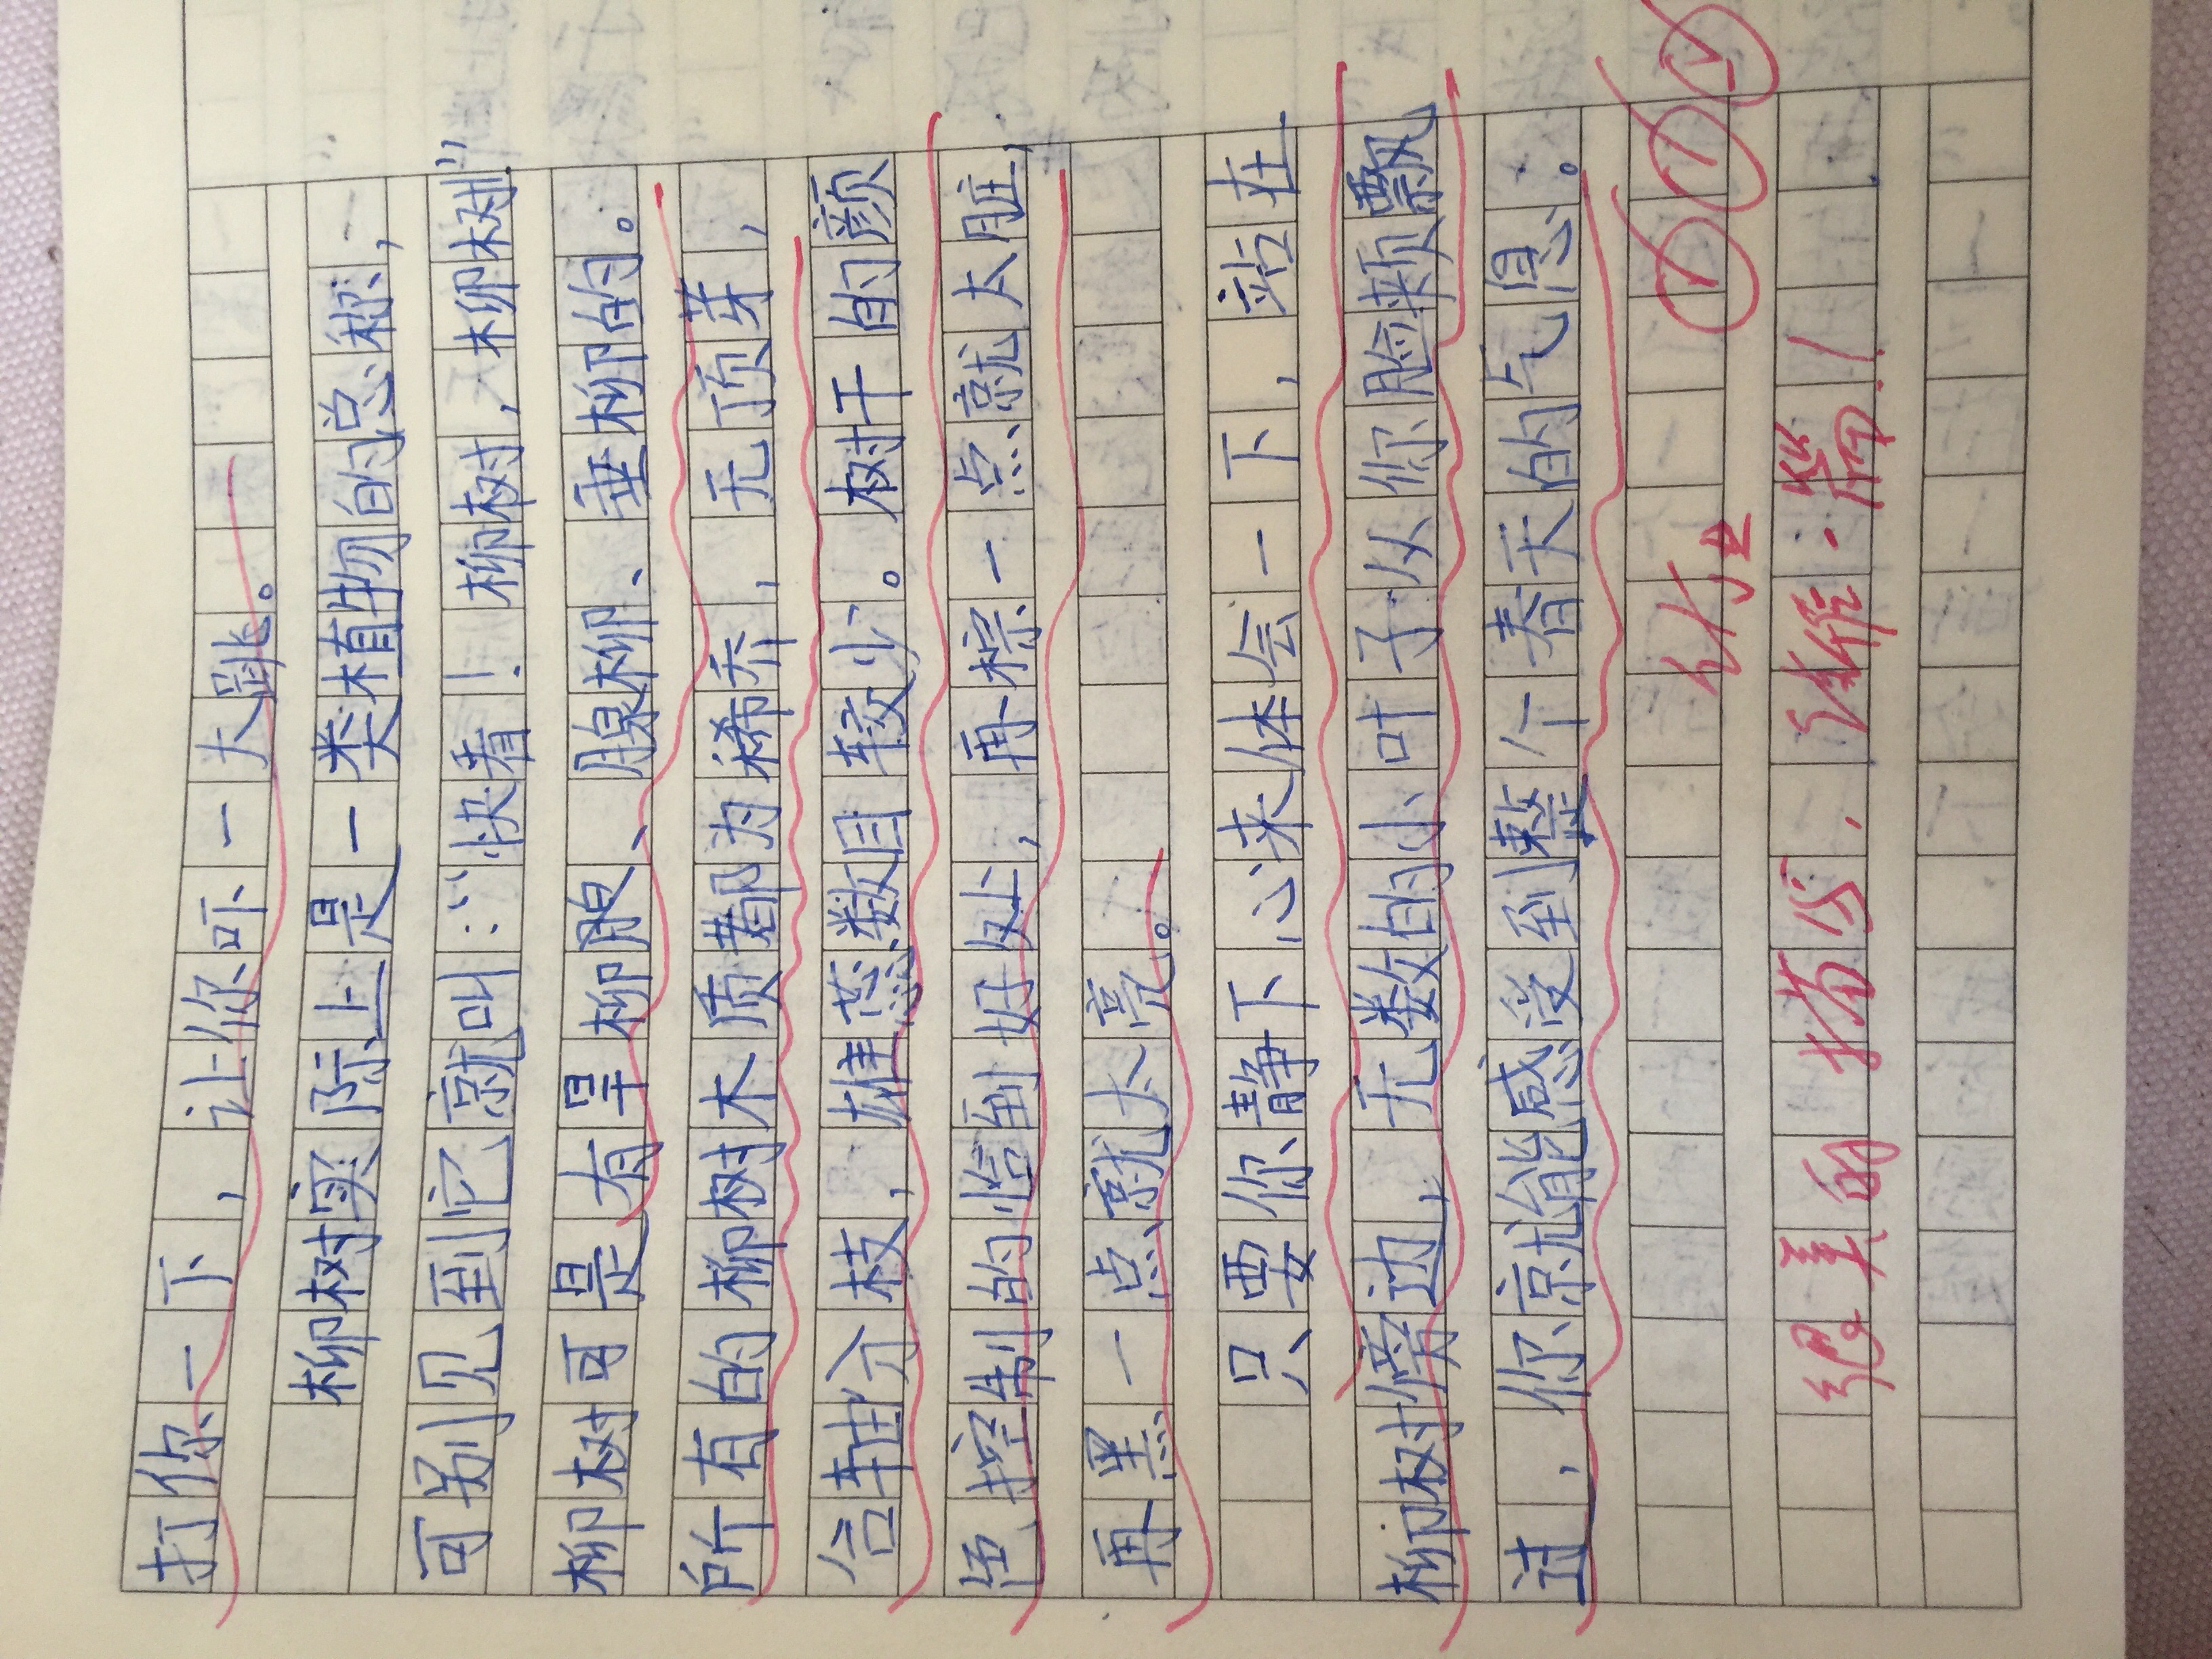 打你一下，让你吓一大跳。
柳树实际上是一类植物的总称，
可别见到它就叫：“快看！柳树，柳树”
柳树可是有旱柳腺、腺柳、垂柳的。
所有的柳树木质都为稀乔，无顶芽，
合轴分枝，雄蕊数目较少。树干的颜
色控制的恰到好处，再棕一点就太脏，
再黑一点就太亮。
只要你静下心来体会一下，站在
柳树傍边，无数的小叶子从你脸颊飘
过，你就能感受到整个春天的气息。
优2